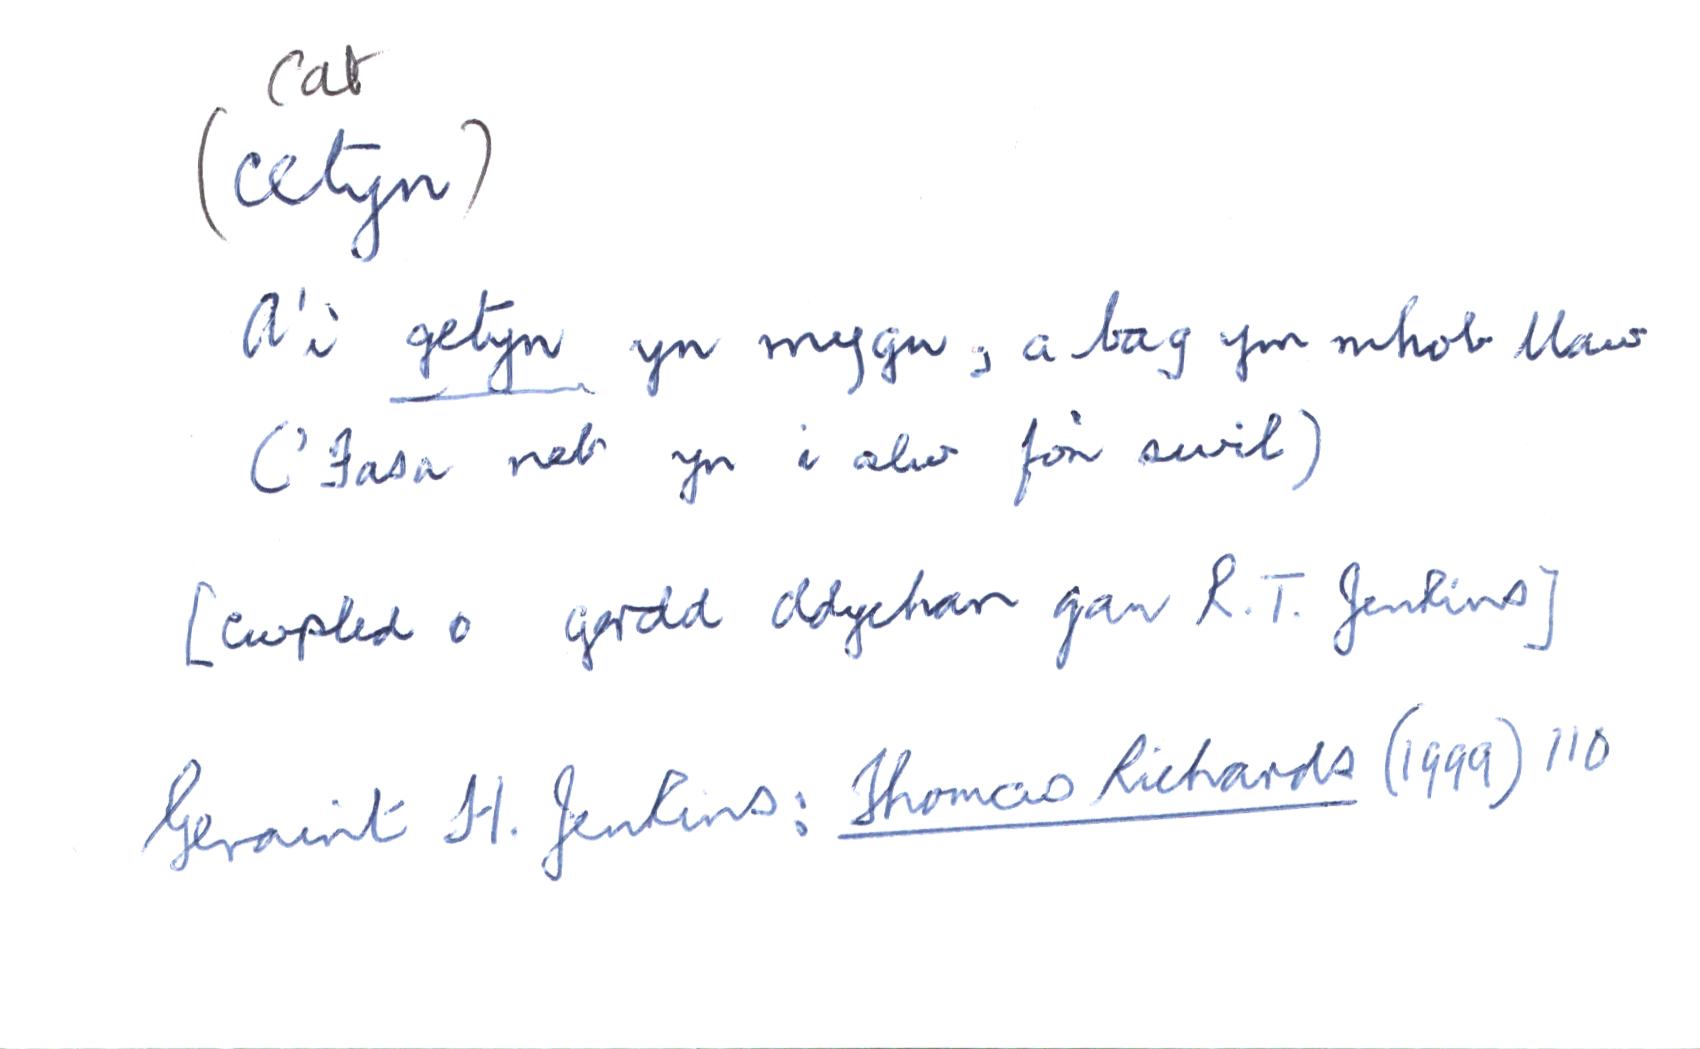 cat
(cetyn)
A'i getyn yn mygu, a bag ym mhob llaw
('Fasa neb yn i alw fo'n swil)
[cwpled o gerdd ddychan gan R.T. Jenkins]
Geraint H. Jenkins: Thomas Richards (1999) 110